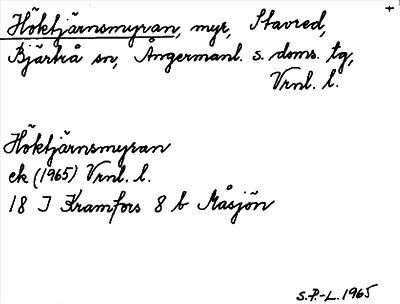 +
Höktjärnsmyran, myr, Stavred,
Bjärtrå sn, Ångermanl. s. doms. tg,
Vrnl. l.
Höktjärnsmyran
ek (1965) Vrnl. l.
18 J Kramfors 8 b Måsjön
S.P.-L. 1965